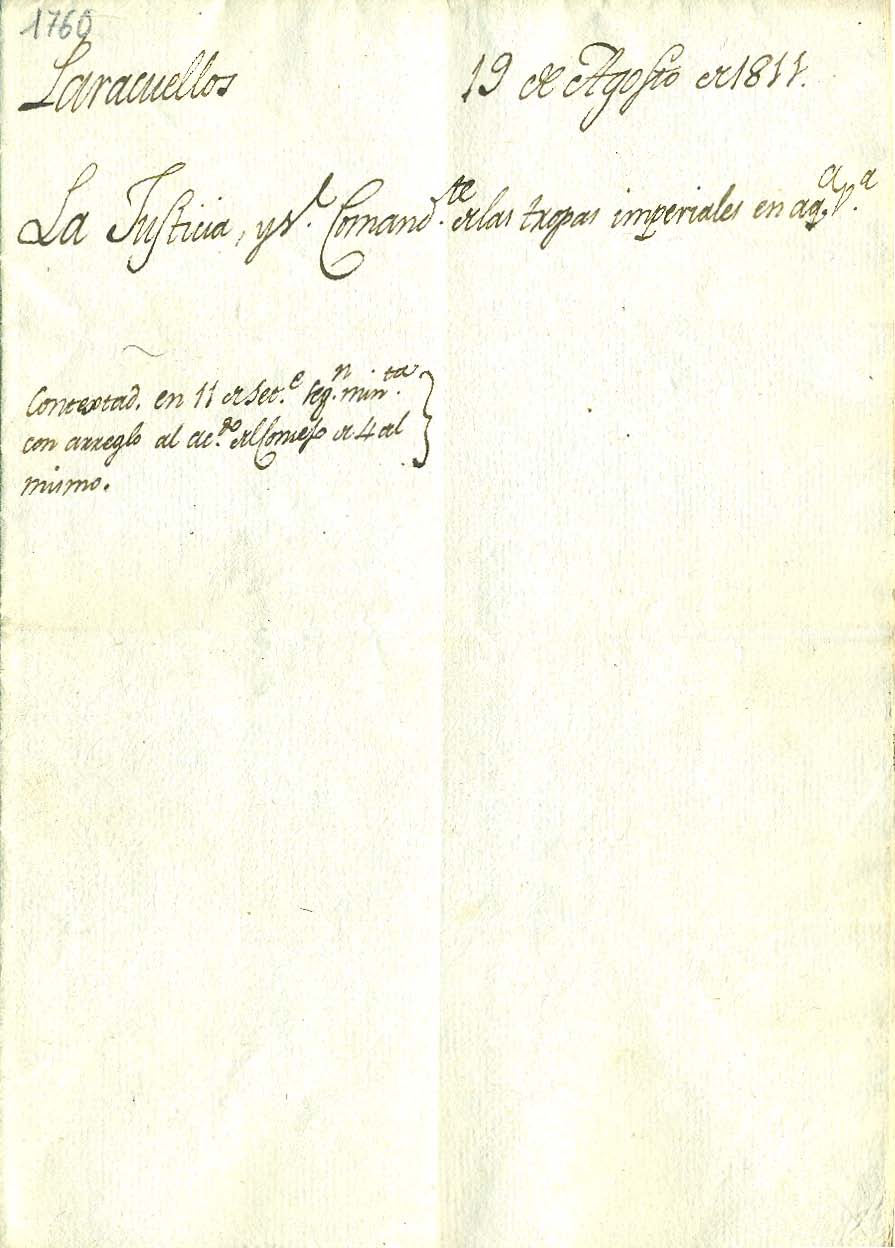 1760
Laracuellos 19 de Agosto de 1811.
La Justicia, y Sr. Comandte. de las tropas imperiales en aqa. Va.
Contextad. en 11 de Set.e segn. minta.
con arreglo al acdo. del Consejo de 4 del
mismo.